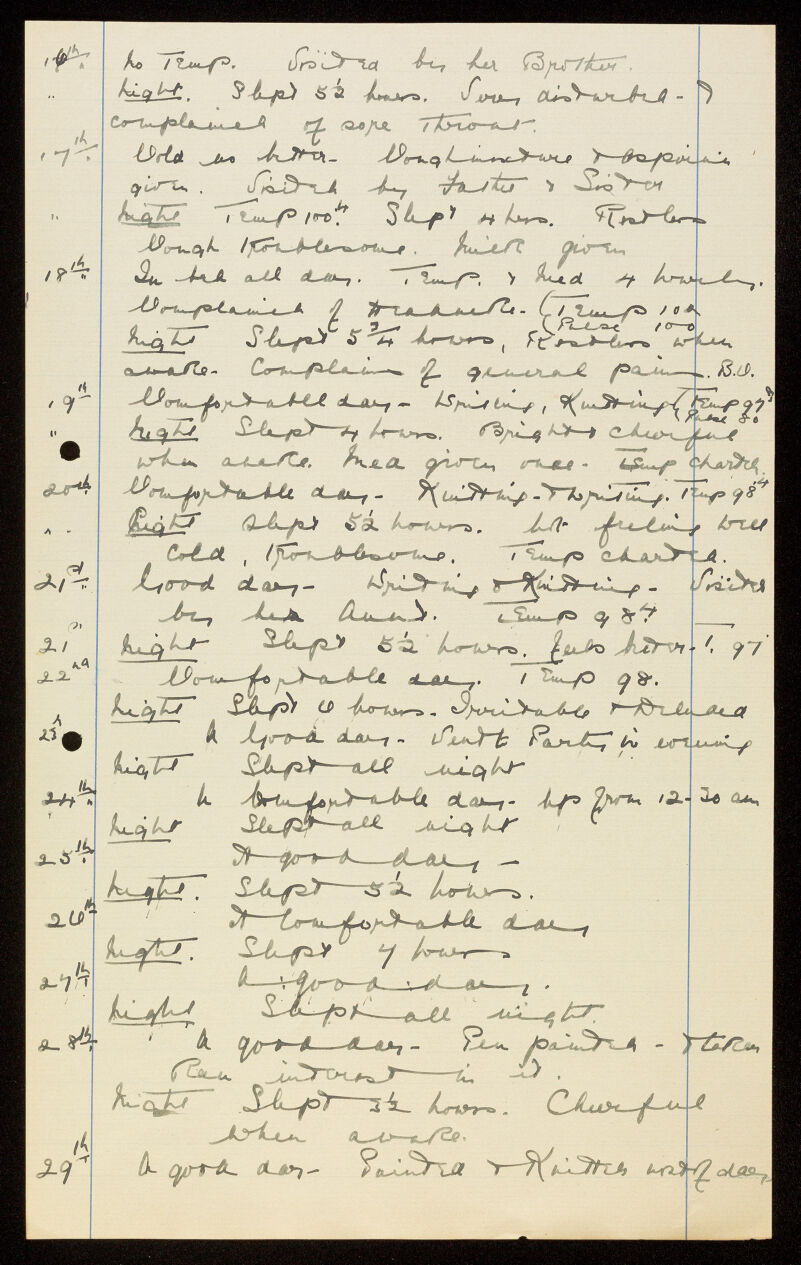 16th No Temp. Visited by her Brother.
" Night. Slept 5½ hours. Very disturbed - &
complained of sore throat.
17th Cold no better - Cough mixture & Aspirin
given. Visited by Father & Sister
" Night Temp 100.4 Slept 4 hrs. Restless
Cough troublesome. Milk given
18th In bed all day. Temp. & Med 4 hourly.
Complained of Headache - (Temp 100
(Pulse 100
Night Slept 5¾ hours, Restless when
awake - Complains of general pains. B.O.
19th Comfortable day - Writing, Knitting (Temp 97
(Pulse 80
" Night Slept 4 hours. Bright & cheerful
when awake. Med given once - Temp charted.
20th Comfortable day - Knitting - & writing. Temp 98.4
" Night Slept 5½ hours. Not feeling well
Cold, troublesome. Temp charted.
21st Good day - Writing & Knitting - Visited
by her Aunt. Temp 98.4
21st Night Slept 5½ hours. feels better - T. 97
22nd Comfortable day. Temp 98.
Night Slept 6 hours - Irritable & Deluded
23 A Good day - Went to Party in evening
Night Slept all night
24th A Comfortable day - Up from 12-30 am
Night Slept all night
25th A good day -
Night. Slept 5½ hours.
26th A Comfortable day
Night. Slept 7 hours
27th A good day.
Night Slept all night.
28th A good day - Pen painted - & takes
Real interest in it.
Night Slept 3½ hours. Cheerful
when awake.
29th A good day - Painted & Knitted most of day